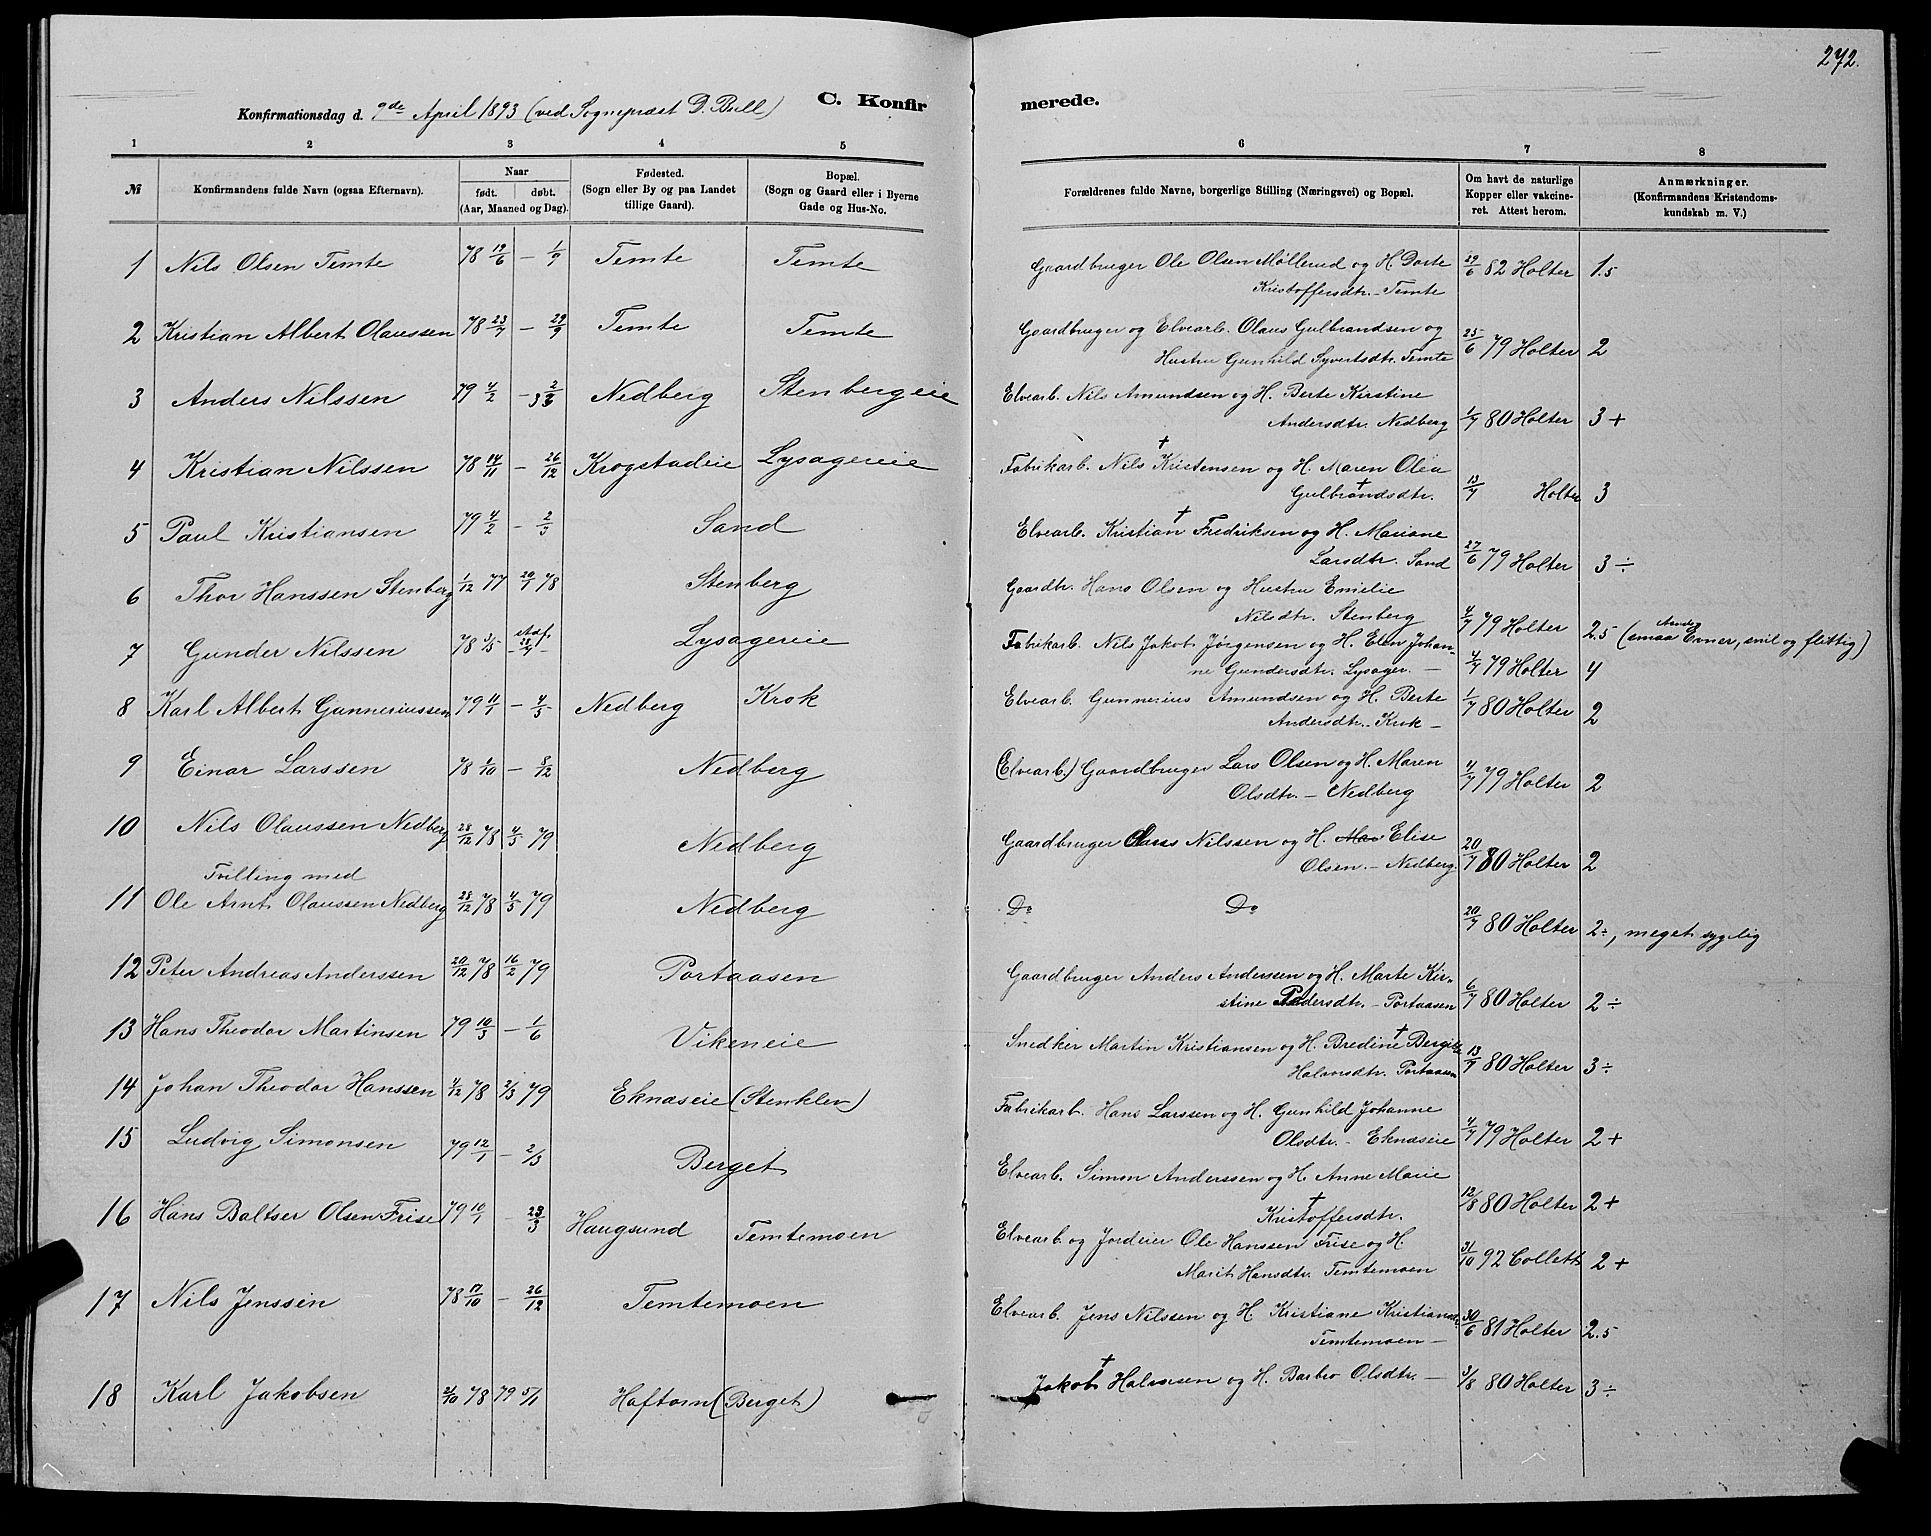 272.
Konfirmationsdag d. 9de April 1893 (ved Sognepræst D. Bull) C. Konfirmerede.
1 2 3 4 5 6 7 8
№ Konfirmandens fulde Navn (ogsaa Efternavn). Naar født. døbt. (Aar, Maaned og Dag). Fødested. (Sogn eller By og paa Landet tillige Gaard). Bopæl. (Sogn og Gaard eller i Byerne Gade og Hus-No. Forældrenes fulde Navne, borgerlige Stilling (Næringsvei) og Bopæl. Om havt de naturlige Kopper eller vakcineret. Attest herom. Anmærkninger. (Konfirmandens Kristendomskundskab m. V.)
1 Nils Olsen Temte 78 19/6 – 1/9 Temte Temte Gaardbruger Ole Olsen Møllerud og H. Dorte 29/6 82 Holter 1.5
Kristoffersdtr. – Temte
2 Kristian Albert Olaussen 78 23/7 – 29/9 Temte Temte Gaardbruger og Elvearb. Olaus Gulbrandsen og
Hustru Gunhild Syvertsdtr. Temte 25/6 79 Holter 2
3 Anders Nilssen 79 4/2 – Nedberg Stenbergeie Elvearb. Nils Amundsen og H. Berte Kirstine
Andersdtr. Nedberg 1/7 80 Holter 3+
4 Kristian Nilssen 78 14/11 – 26/12 Krogstadeie Lysagereie Fabrikarb. Nils † Kristensen og H. Maren Olea
Gulbrandsdtr. † 13/7 Holter 3
5 Paul Kristiansen 79 4/2 – 2/3 Sand Elvearb. Kristian † Fredriksen og H. Mariane
Larsdtr. Sand 27/6 79 Holter 3 ÷
6 Thor Hanssen Stenberg 1/12 77 20/1 78 Stenberg Gaardbr. Hans Olsen og Hustru Emilie
Nilsdtr. Stenberg 4/7 79 Holter 2.5 (smaa Aands Evner, snil og flittig)
7 Gunder Nilssen 78 3/5 stadf. 28/7 Lysagereie Fabrikarb. Nils Jakob Jørgensen og H. Elen Johan-
ne Gundersdtr. Lysager. – 4/7 79 Holter 4
8 Karl Albert Gunneriussen 79 11/1 – 4/5 Nedberg Krok Elvearb. Gunnerius Amundsen og H. Berte
Andersdtr. – Krok – 1/7 80 Holter 2
9 Einar Larssen 78 1/10 – 8/12 Nedberg (Elvearb.) Gaardbruger Lars Olsen og H. Maren
Olsdtr. – Nedberg 4/7 79 Holter 2
10 Nils Olaussen Nedberg 28/12 78 4/5 79 Nedberg Gaardbruger Olaus Nilssen og H. Mar Elise
Olsen. – Nedberg. 20/7 80 Holter 2
Tvilling med
11 Ole Arnt Olaussen Nedberg 28/12 78 4/5 79 Nedberg Do Do 20/7 80 Holter 2÷, meget sygelig
12 Peter Andreas Anderssen 20/12 78 16/2 79 Portaasen Gaardbruger Anders Anderssen og H. Marte Kir-
stine Pedersdtr. – Portaasen 6/7 80 Holter 2 ÷
13 Hans Theodor Martinsen 79 10/3 – 1/6 Vikeneie Snedker Martin Kristiansen og H. Bredine † Bergitte
Halvorsdtr. Portaasen 13/7 80 Holter 3 ÷
14 Johan Theodor Hanssen 4/12 78 2/3 79 Eknæseie (Stenklev) Fabrikarb. Hans Larssen og H. Gunhild Johanne
Olsdtr. – Eknæseie 4/7 79 Holter 2 +
15 Ludvig Simonsen 79 12/1 – 2/3 Berget Elvearb. Simon Anderssen og H. Anne Marie
† Kristoffersdtr. 12/8 80 Holter 2 +
16 Hans Baltser Olsen Frisel 79 10/1 – 23/3 Haugsund Temtemoen Elvearb. og Jordeier Ole Hanssen Frise og H.
Marit Hansdtr. Temtemoen 31/10 92 Collett 2 +
17 Nils Jenssen 78 17/10 – 26/12 Temtemoen Elvearb. Jens Nilssen og H. Kristiane Kristiansdtr.
Temtemoen – 30/6 81 Holter 2.5
18 Karl Jakobsen 2/10 78 79 5/1 Haftorn (Berget) † Jakob Halvorsen og H. Barbro Olsdtr. – 3/8 80 Holter 3 ÷